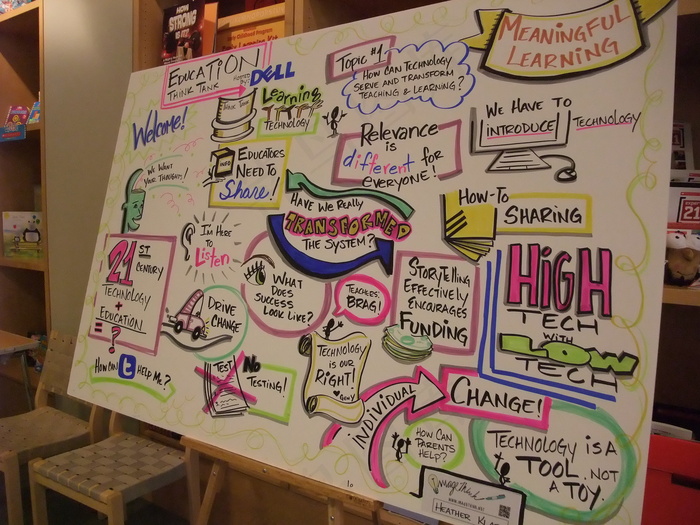 EDUCATION
THINK TANK
HOSTED BY: DELL
Topic #1
HOW CAN TECHNOLOGY
SERVE AND TRANSFORM
TEACHING & LEARNING?
MEANINGFUL
LEARNING
Welcome!
Learning
TECHNOLOGY
WE WANT
YOUR THOUGHTS!
INFO
EDUCATORS
NEED TO
Share!
Relevance
is
different for
everyone!
WE HAVE TO
INTRODUCE TECHNOLOGY
HAVE WE REALLY
TRANSFORMED
THE SYSTEM?
HOW-TO
SHARING
I'M HERE
TO
Listen
21ST
CENTURY
TECHNOLOGY
+
EDUCATION
= ?
DRIVE
CHANGE
WHAT
DOES
SUCCESS
LOOK LIKE?
TEACHERS,
BRAG!
STORYTELLING
EFFECTIVELY
ENCOURAGES
FUNDING
HIGH
TECH
WITH
LOW
TECH
HOW CAN t HELP ME?
TEST
NO
TESTING!
TECHNOLOGY
IS OUR
RIGHT!
GEN Y
INDIVIDUAL
CHANGE!
HOW CAN
PARENTS
HELP?
TECHNOLOGY IS A
TOOL, NOT
A TOY.
ImageThink
HEATHER
HOW
STRONG
IS
21